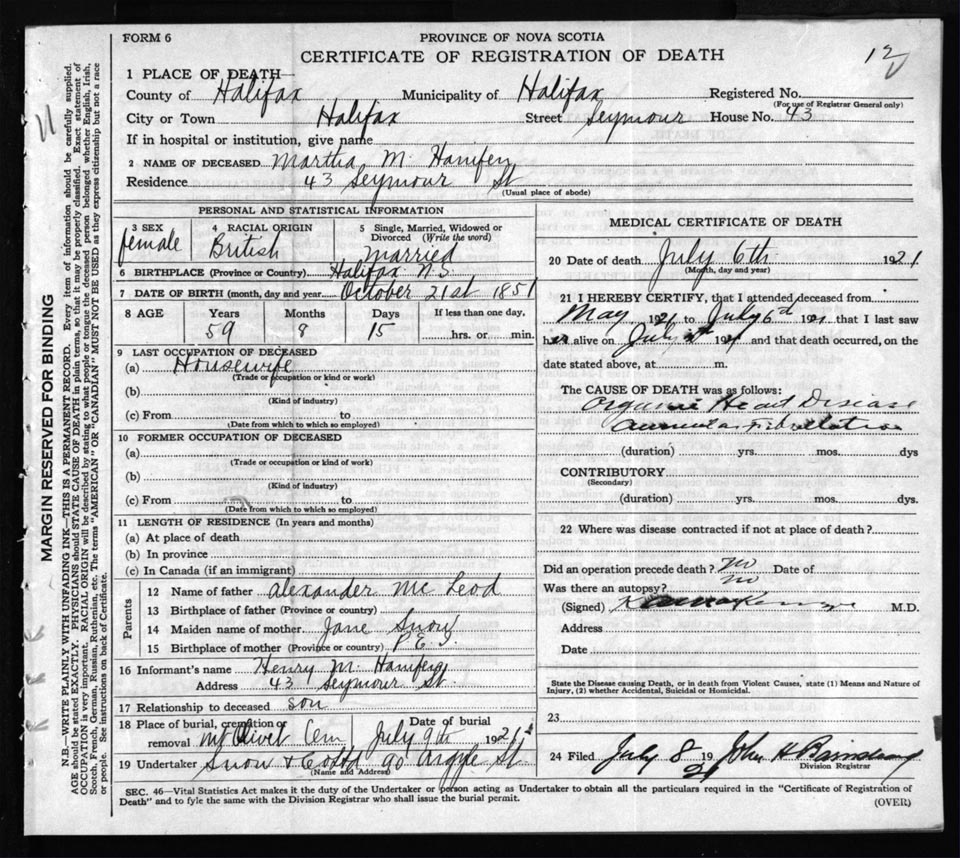 FORM 6
PROVINCE OF NOVA SCOTIA
CERTIFICATE OF REGISTRATION OF DEATH
12
1 PLACE OF DEATH—
County of Halifax Municipality of Halifax Registered No.
(For use of Registrar General only)
City or Town Halifax Street Seymour House No. 43
If in hospital or institution, give name
2 NAME OF DECEASED Martha M. Hanifen
Residence 43 Seymour St
(Usual place of abode)
PERSONAL AND STATISTICAL INFORMATION
3 SEX
female
4 RACIAL ORIGIN
British
5 Single, Married, Widowed or Divorced (Write the word)
Married
6 BIRTHPLACE (Province or Country) Halifax N.S.
7 DATE OF BIRTH (month, day and year) October 21st 1851
8 AGE Years Months Days If less than one day,
59 8 15 hrs. or min.
9 LAST OCCUPATION OF DECEASED
(a) Housewife
(Trade or occupation or kind or work)
(b)
(Kind of industry)
(c) From to
(Date from which to which so employed)
10 FORMER OCCUPATION OF DECEASED
(a)
(Trade or occupation or kind of work)
(b)
(Kind of industry)
(c) From to
(Date from which to which so employed)
11 LENGTH OF RESIDENCE (In years and months)
(a) At place of death
(b) In province
(c) In Canada (if an immigrant)
Parents
12 Name of father Alexander Mc Leod
13 Birthplace of father (Province or country)
14 Maiden name of mother Jane Snow
15 Birthplace of mother (Province or country) P.E.I.
16 Informant's name Henry M. Hanifen
Address 43 Seymour St.
17 Relationship to deceased son
18 Place of burial, cremation or removal Mt Olivet Cem
Date of burial July 9th 1921
19 Undertaker Snow & Co Ltd 90 Argyle St.
(Name and Address)
MEDICAL CERTIFICATE OF DEATH
20 Date of death July 6th 1921
(Month, day and year)
21 I HEREBY CERTIFY, that I attended deceased from
May 1921 to July 6th 1921 that I last saw
her alive on July 1921 and that death occurred, on the
date stated above, at m.
The CAUSE OF DEATH was as follows:
Organic Heart Disease
Auricular Fibrillation
(duration) yrs. mos. dys
CONTRIBUTORY
(Secondary)
(duration) yrs. mos. dys.
22 Where was disease contracted if not at place of death?
Did an operation precede death? No Date of
Was there an autopsy? No
(Signed) M.D.
Address
Date
State the Disease causing Death, or in death from Violent Causes, state (1) Means and Nature of
Injury, (2) whether Accidental, Suicidal or Homicidal.
23
24 Filed July 8 1921 John H
Division Registrar
SEC. 46—Vital Statistics Act makes it the duty of the Undertaker or person acting as Undertaker to obtain all the particulars required in the "Certificate of Registration of
Death" and to fyle the same with the Division Registrar who shall issue the burial permit.
(OVER)
MARGIN RESERVED FOR BINDING
N.B.—WRITE PLAINLY WITH UNFADING INK—THIS IS A PERMANENT RECORD. Every item of information should be carefully supplied.
AGE should be stated EXACTLY. PHYSICIANS should STATE CAUSE OF DEATH in plain terms, so that it may be properly classified. Exact statement of
OCCUPATION is very important. RACIAL ORIGIN will be described by stating to what people or tongue the deceased person belonged whether English, Irish,
Scotch, French, German, Russian, Ruthenian, etc. The terms "AMERICAN" OR "CANADIAN" MUST NOT BE USED as they express citizenship but not a race
or people. See instructions on back of Certificate.